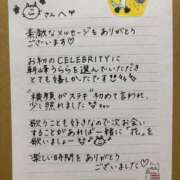 さんへ♡
素敵なメッセージをありがとう
ございます♡
お初のCELEBRITYに
朝峰うららを選んでいただき
とても嬉しかったです
"横顔がステキ"初めて言われ、
少し照れました
歌うことも好きなので次お会い
することがあれば一緒に『花』を
歌いましょ
楽しい時間をありがとう
ございました♡